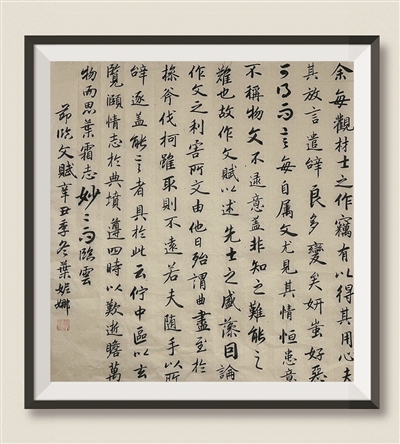 余每觀材士之作竊有以得其用心夫
其放言遣辭良多變矣妍蚩好惡
可得而言每自属文尤見其情恒患意
不稱物文不逮意盖非知之難能之
難也故作文賦以述先士之盛藻因論
作文之利害所文由他日殆謂曲盡至於
操斧伐柯雖取則不遠若夫随手以所
辭逐盖能言者具於此云佇中區以玄
覽頤情志於典墳遵四時以歎逝瞻萬
物而思葉霜志妙々而臨雲
節臨文賦辛丑季冬葉妮娜